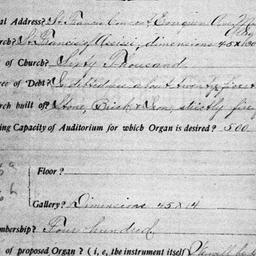 al Address? St Francis Convent Evergreen Ave
rch? St Francis of Assisi, dimensions 45 x 100
of Church? Sixty Thousand
ree of Debt? Indebtedness about twenty five
rch built of? Stone, Brick & Iron, strictly fire
ing Capacity of Auditorium for which Organ is desired? 500
Floor?
Gallery? Dimensions 45 x 14
mbership? Four hundred
of proposed Organ? (i, e, the instrument itself)